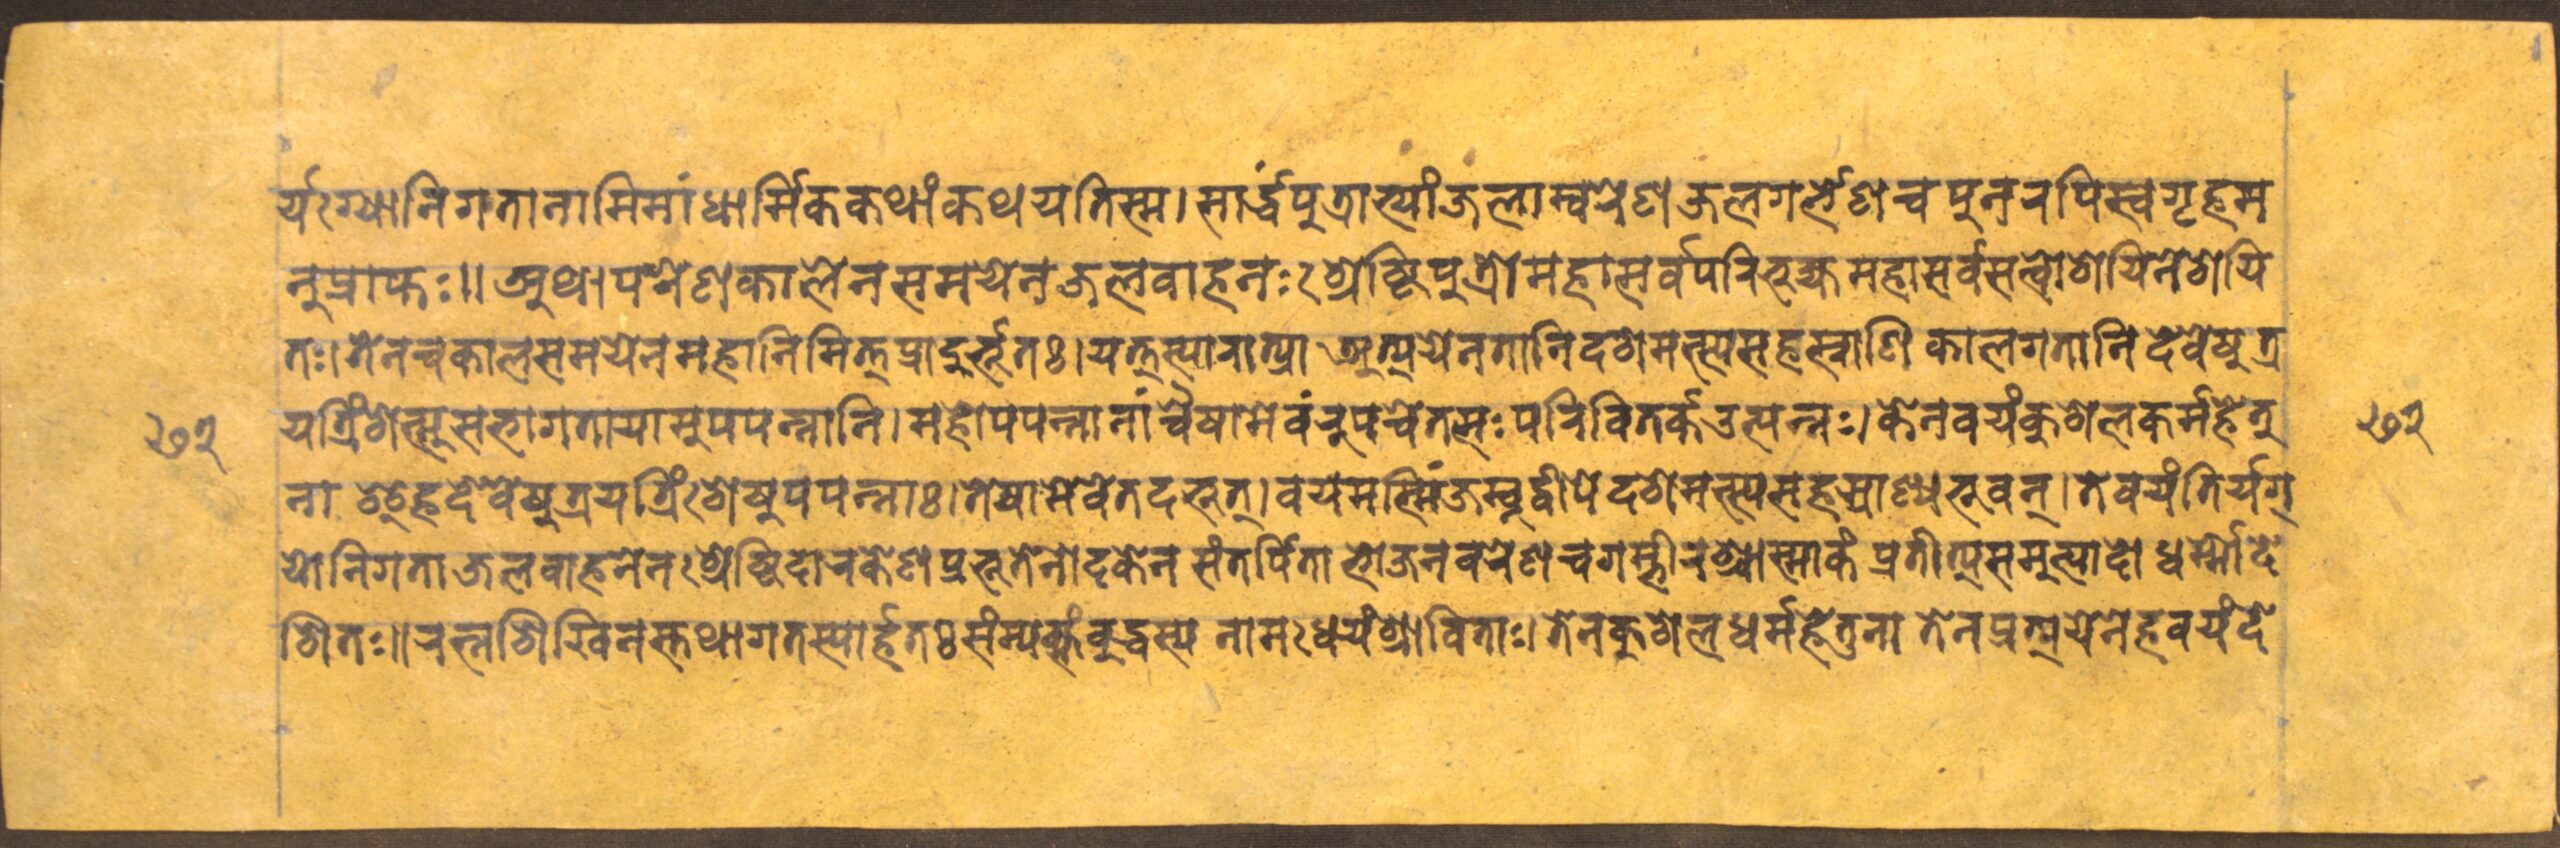 र्यःग्यानिगतानामिमांधार्मिककथांकथयतिस्म। सार्द्धंपुत्राभ्यांजलाम्बरेणजलगर्भेणचपुनरपिस्वगृहम
नुप्राप्तः॥ अथापरेणकालेनसमयेनजलवाहनःश्रेष्ठिपुत्रोमहात्सर्वपरिभुज्यमहासर्वसत्वोशयिनेशयि
तः। तेनचकालसमयेनमहानिमित्तप्रादुर्भूतः। यत्तस्यारात्र्या अत्ययेनतानिदशमत्स्यसहस्राणि कालगतानि देवेषुत्र
यत्रिंशेत्सुसभागतायामुपपन्नानि। महोपपन्नानांचैषामेवंरुपचेतसःपरिवितर्कउत्पन्नः। केनवयंकुशलकर्महेतु
ना इहदेवेषुत्रयत्रिंशेषुपपन्नाः। तेषामेवेतदभूत्। वयमस्मिंजम्बुद्वीपेदशमत्स्यसहस्राण्यभूवन्। तेवयंतिर्यग्
योनिगताजलवाहनेनःश्रेष्ठिदारकेणप्रभूतेनोदकेन संतर्पिताभोजनवरेणचगम्भीरश्चास्माकं प्रतीत्यसमुत्पादोधर्म्मोदे
शितः॥ रत्नशिखिनस्तथागतस्यार्हतःसंम्यक्संबुद्धस्य नामःधेयंश्राविताः। तेनकुशलधर्महेतुना तेनप्रत्ययेनेहवयंदे
७२
७२